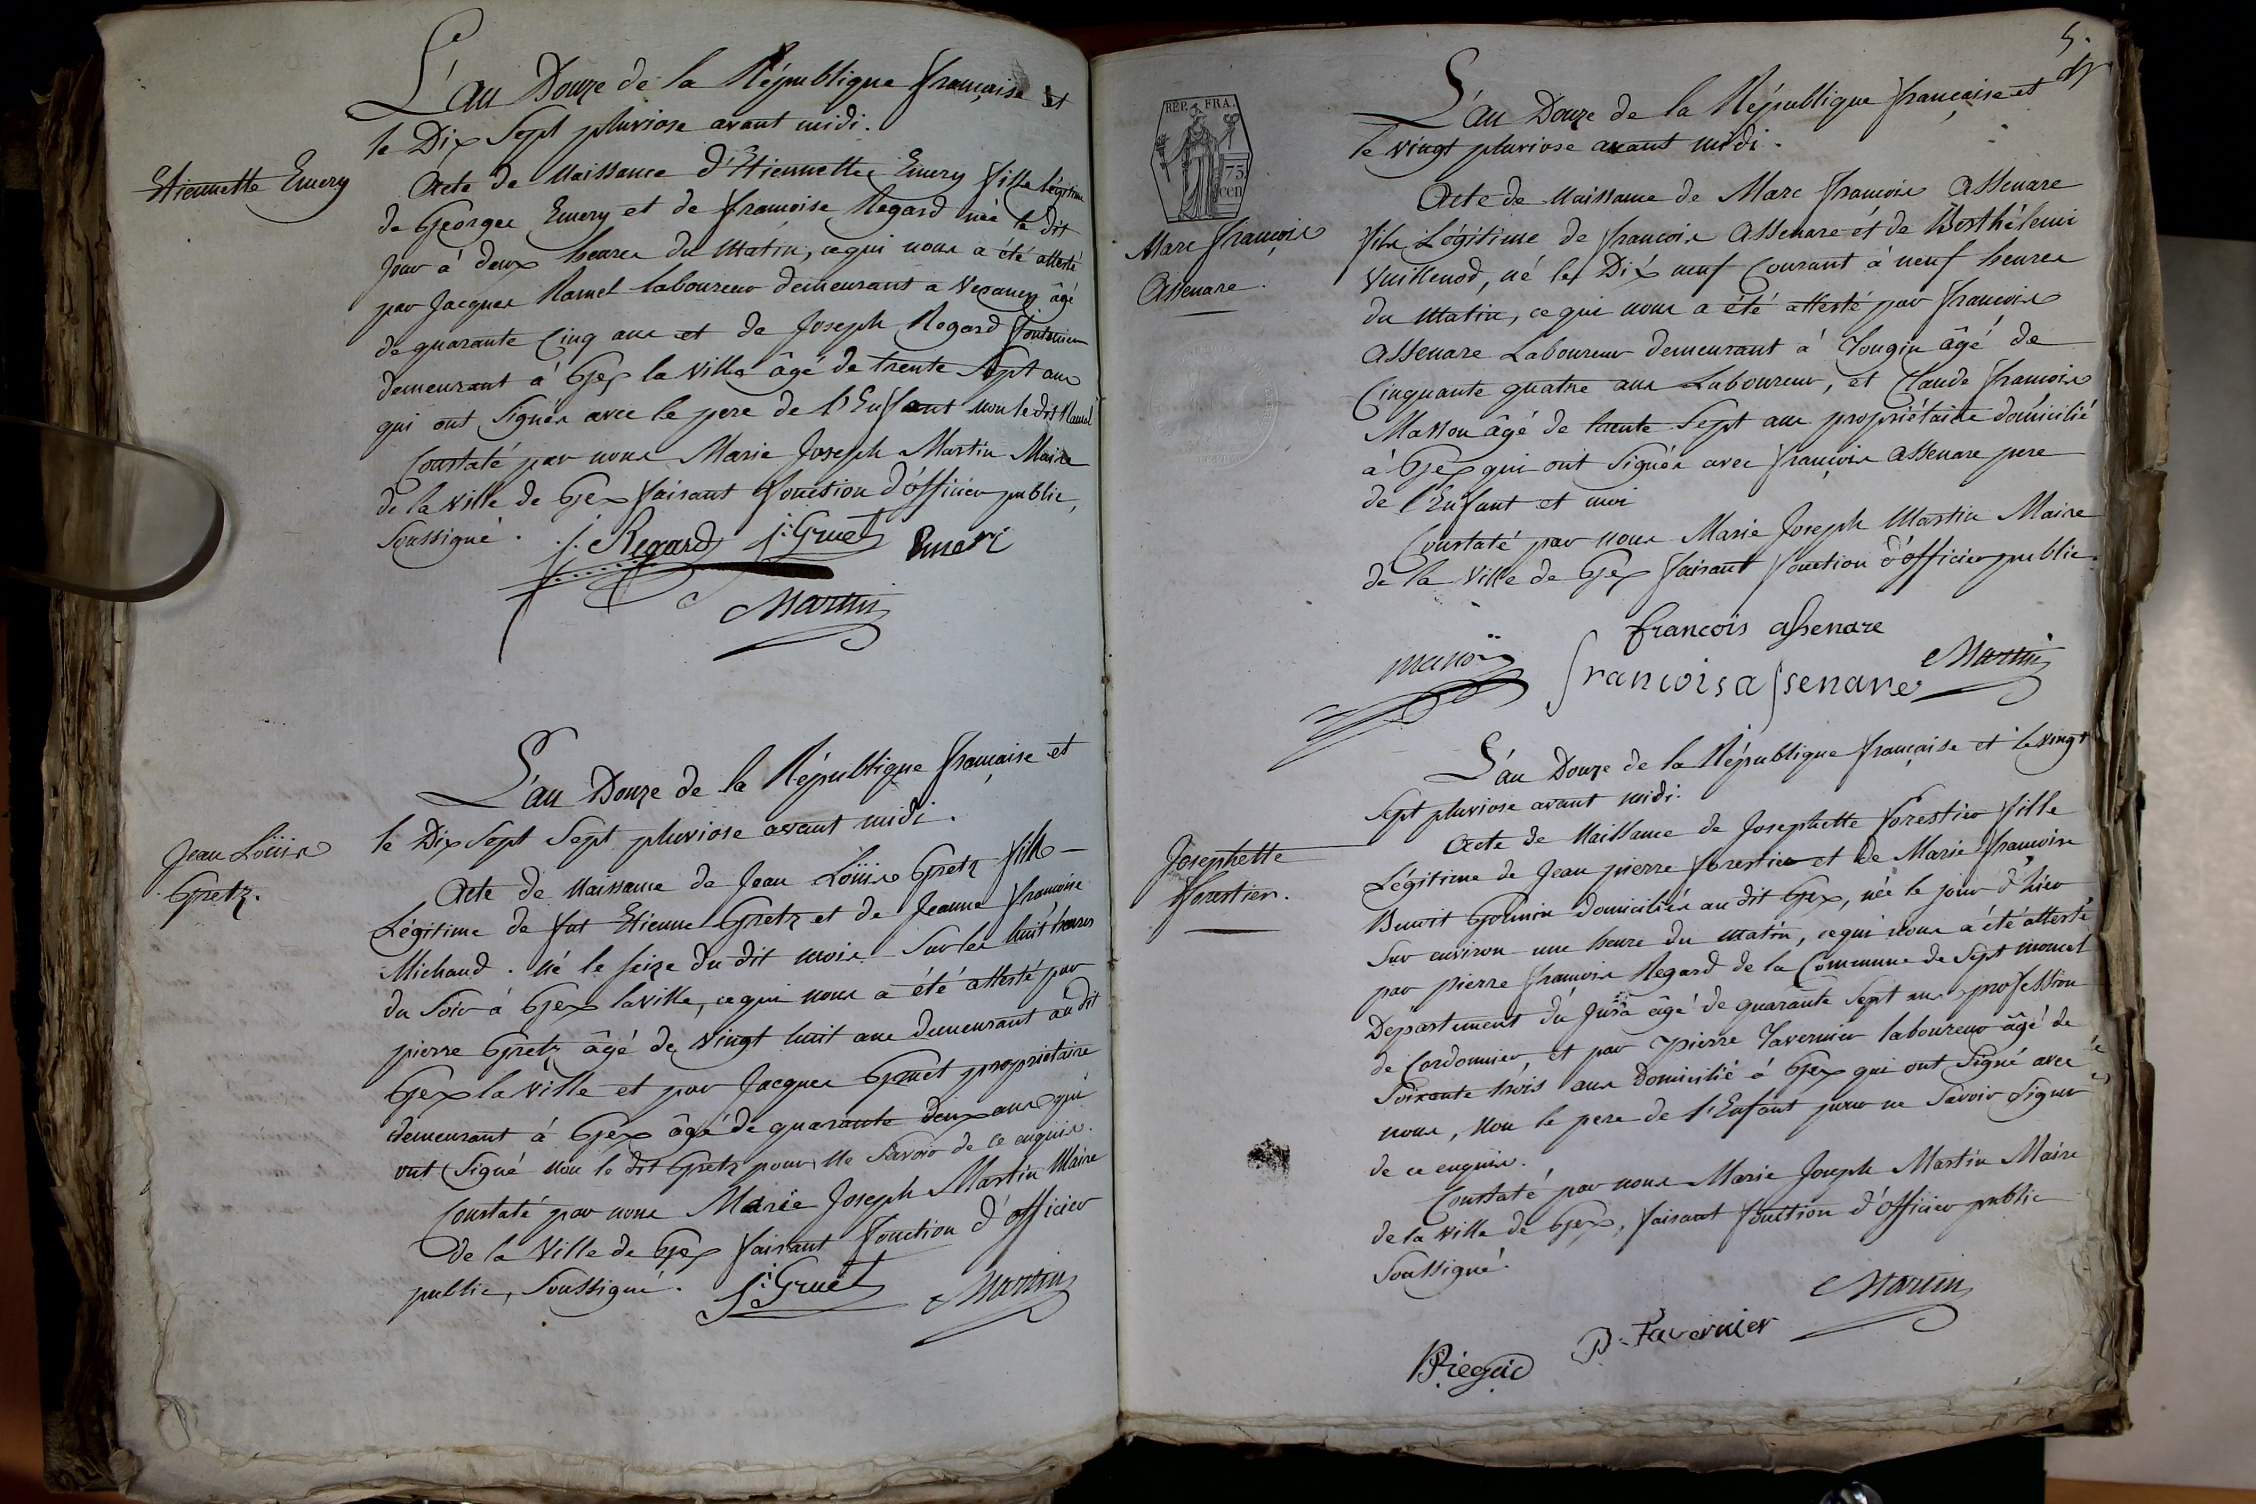 L'an Douze de la République française et
le Dix Sept pluviose avant midi.
Etiennette Emery
Acte de Naissance d'Etiennette Emery fille légitime
de George Emery et de françoise Regard née le dit
jour à deux heures du matin, ce qui nous a été attesté
par Jacques Ramel laboureur demeurant a Vesancy âgé
de quarante Cinq ans et de Joseph Regard
demeurant à Gex la ville âgé de trente Sept ans
qui ont Signés avec le pere de l'Enfant non le dit Ramel
Constaté par nous Marie Joseph Martin Maire
de la ville de Gex faisant fonction d'officier public,
Soussigné.
j. Regard j. Gruet Emeri
Martin
L'an Douze de la République française et
le Dix Sept Sept pluviose avant midi.
Jean Loüis
Gretz.
Acte de Naissance de Jean Loüis Gretz fils
Légitime de fut Etienne Gretz et de Jeanne françoise
Michaud. né le seize du dit mois Sur les huit heures
du Soir à Gex la ville, ce qui nous a été attesté par
pierre Gretz âgé de vingt huit ans demeurant au dit
Gex la ville et par Jacques Gruet propriétaire
demeurant à Gex âgé de quarante Deux ans qui
ont Signé non le dit Gretz pour ne Savoir de ce enquis.
Constaté par nous Marie Joseph Martin Maire
de la Ville de Gex faisant fonction d'officier
public, Soussigné.
j. Gruet Martin
5.
REP. FRA.
75
cen
L'an Douze de la République française et
le vingt pluviose avant midi.
Marc françois
Assenare.
Acte de Naissance de Marc françois Assenare
fils Légitime de françois Assenare et de Berthélemi
Vuillenod, né le Dix neuf Courant à neuf heures
du matin, ce qui nous a été attesté par françois
Assenare Laboureur demeurant à Tougin âgé de
Cinquante quatre ans Laboureur, et Claude françois
Masson âgé de trente Sept ans propriétaire domicilié
à Gex qui ont Signés avec françois Assenare pere
de l'Enfant et moi
Constaté par nous Marie Joseph Martin Maire
de la Ville de Gex faisant fonction d'officier public.
francois assenare
masson francois assenare Martin
L'an Douze de la République française et le vingt
Sept pluviose avant midi.
Josephette
forestier.
Acte de Naissance de Josephette forestier fille
Légitime de Jean pierre forestier et de Marie françoise
Benoit domiciliés au dit Gex, née le jour d'hier
Sur environ une heure du matin, ce qui nous a été attesté
par pierre françois Regard de la Commune de Sept moncel
Département du Jura âgé de quarante Sept ans profession
de Cordonnier et par pierre Tavernier laboureur âgé de
Soixante trois ans Domicilié à Gex qui ont Signé avec
nous, non le pere de l'Enfant pour ne Savoir Signer
de ce enquis.
Constaté par nous Marie Joseph Martin Maire
de la ville de Gex, faisant fonction d'officier public
Soussigné.
Martin
P. Tavernier